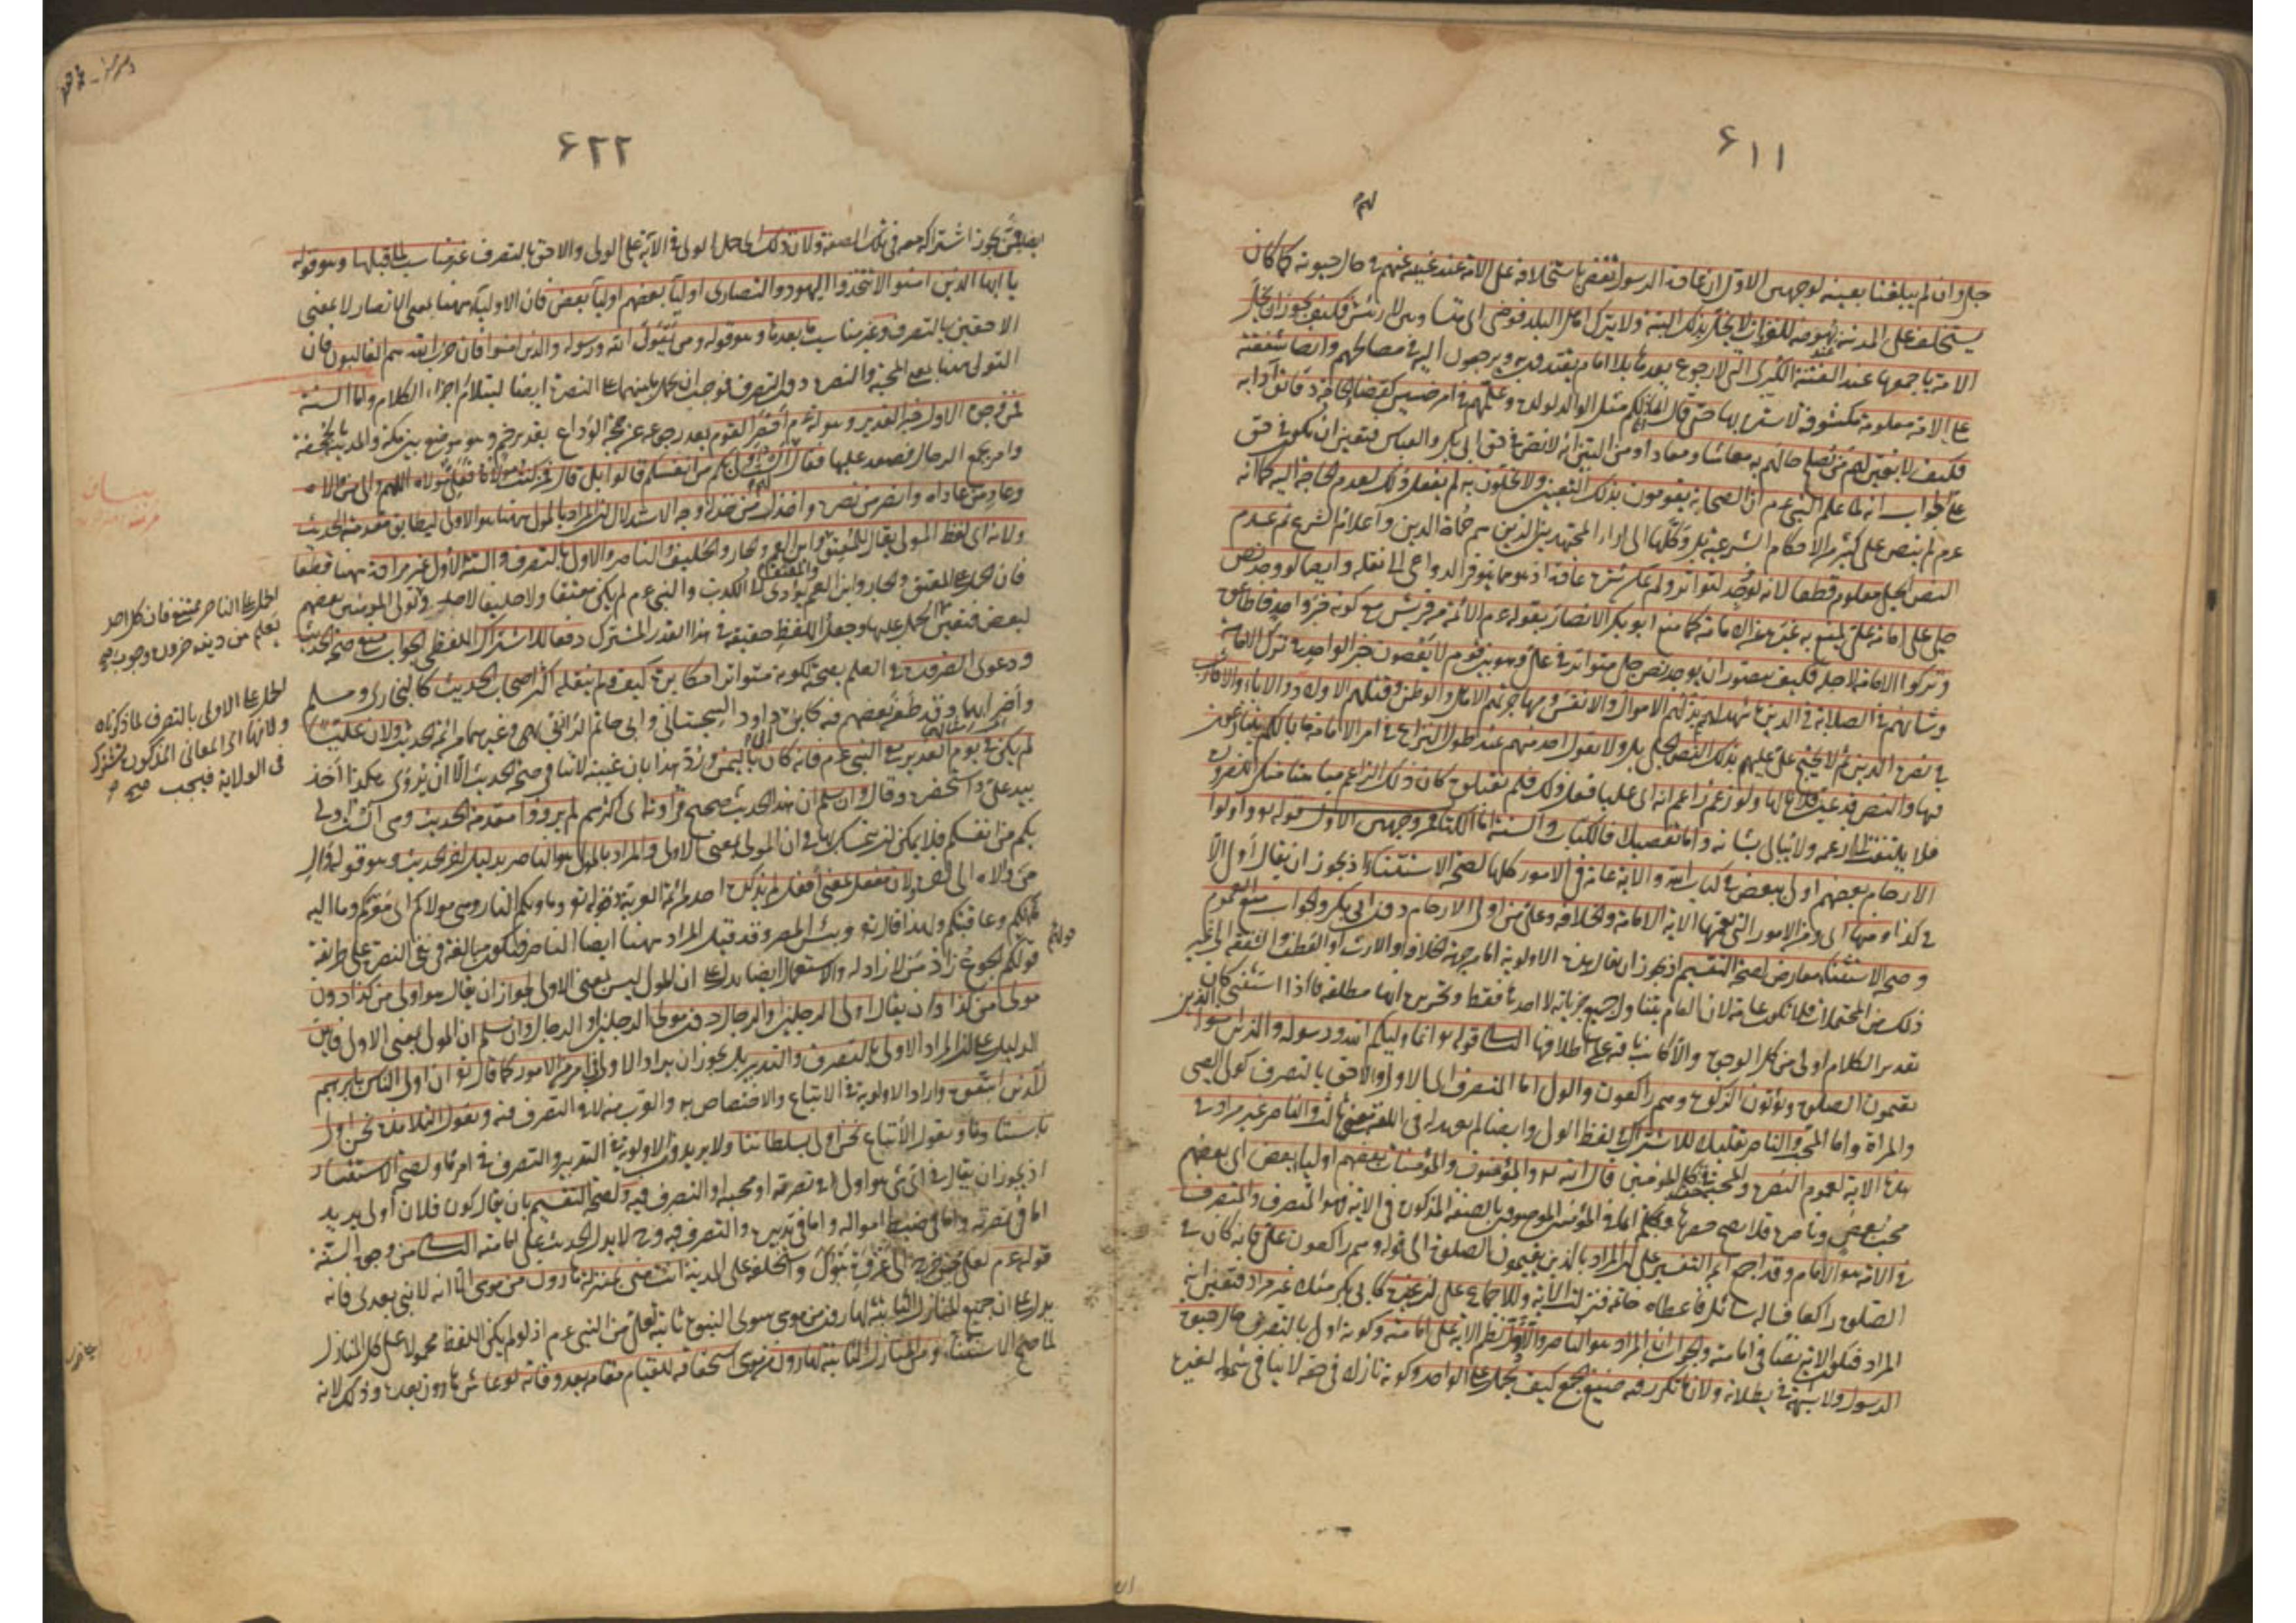 ۶۱۱
جلى وان لم يبلغنا بعينه لوجهين الاول ان عادة الرسول تقضى باستخلافه على الامة عند غيبته عنهم فى حال حيوته كما كان
يستخلف على المدينة عند نهوضه للغزوات لا يخل بذلك البتة ولا يترك اهل البلد فوضى اى متساوين لا رئيس لهم فكيف يجوز ان يخلى
الامة باجمعها عند الغيبة الكبرى التى لا رجوع بعدها بلا امام يقتدون به ويرجعون اليه فى مصالحهم وايضا شفقته
على الامة معلومة مكشوفة لا سترة بها حتى قال انما انا لكم مثل الوالد لولده وعلمهم فى امر خسيس كقضاء الحاجة دقائق آدابه
فكيف لا يعين لهم من يصلح حالهم به معاشا ومعادا ومن البين انه لا نص فى حق ابى بكر والعباس فتعين ان يكون فى حق
على الجواب انه لما علم النبى عم ان الصحابة يقومون بذلك التعيين ولا يخلون به لم يفعل ذلك لعدم الحاجة اليه كما انه
عم لم ينص على كثير من الاحكام الشرعية بل وكلها الى آراء المجتهدين الذين هم حماة الدين واعلام الشرع ثم عدم
النص الجلى معلوم قطعا لانه لو وجد لتواتر ولم يمكن ستره عادة اذ هو مما يتوفر الدواعى الى نقله وايضا لو وجد نص
جلى على امامة على لمنع به غيره عن الامامة كما منع ابو بكر الانصار بقوله عم الائمة من قريش مع كونه خبر واحد فاطاعوه
وتركوا الامامة لاجله فكيف يتصور ان يوجد نص جلى متواتر فى على وهو بين قوم لا يعصون خبر الواحد فى ترك الامامة
وشانهم فى الصلابة فى الدين ما يشهد لهم بذلهم الاموال والانفس ومهاجرتهم الاهل والوطن وقتلهم الاولاد والآباء والاقارب
فى نصرة الدين ثم لا يحتج على عليهم بذلك النص الجلى بل ولا يقول احد منهم عند طول النزاع فى امر الامامة ما بالكم تتنازعون
فيها والنص قد عين فلانا لها ولو زعم زاعم انه اى عليا فعل ذلك فلم يقبلوه كان ذلك الزاعم مباهتا منكرا للضرورة
فلا يلتفت الى زعمه ولا يبالى بشانه واما تفصيلا فالكتاب والسنة اما الكتاب فمن وجهين الاول قوله تع واولوا
الارحام بعضهم اولى ببعض فى كتاب الله والاية عامة فى الامور كلها لصحة الاستثناء اذ يجوز ان يقال اولى الا
فى كذا ومنها اى ومن الامور التى تعمها الاية الامامة والخلافة وعلى من اولى الارحام دون ابى بكر والجواب منع العموم
وصحة الاستثناء معارض بصحة التقسيم اذ يجوز ان يقال هذه الاولوية اما من جهة الخلافة او الارث او العطف والشفقة الى غير
ذلك من المحتملات فلا تكون عامة لان العام يتناول جميع جزئياته لا احدها فقط وتحريره انها مطلقة فاذا استثنى كان
تقدير الكلام اولى من كل الوجوه والا كانت باقية على اطلاقها الثانى قوله تع انما وليكم الله ورسوله والذين آمنوا الذين
يقيمون الصلوة ويؤتون الزكوة وهم راكعون والولى اما المتصرف اى الاولى والاحق بالتصرف كولى الصبى
والمراة واما المحب والناصر تقليلا للاشتراك فى لفظ الولى وايضا لم يعهد له فى اللغة معنى ثالث والناصر غير مراد فى
هذه الاية لعموم النصرة والمحبة فى كل المؤمنين قال الله تع والمؤمنون والمؤمنات بعضهم اولياء بعض اى بعضهم
محب بعض وناصره فلا يصح حصرها بكلمة انما فى المؤمنين الموصوفين بالصفة المذكورة فى الاية فهو المتصرف والمتصرف
فى الامة هو الامام وقد اجمع ائمة التفسير على ان المراد بالذين يقيمون الصلوة الى قوله وهم راكعون على فانه كان فى
الصلوة راكعا فساله سائل فاعطاه خاتمه فنزلت الاية وللاجماع على ان غيره كابى بكر مثلا غير مراد فتعين انه
المراد فتكون الاية نصا فى امامته والجواب ان المراد هو الناصر والا دل نظم الاية على امامته وكونه اولى بالتصرف حال حيوة
الرسول ولا شبهة فى بطلانه ولان ما تكرر فيه صيغ الجمع كيف يحمل على الواحد وكونه نازلا فى حقه لا ينافى شموله لغيره
۶۲۲
ايضا ممن يجوز اشتراكه معه فى تلك الصفة ولان ذلك اى حمل الولى فى الاية على الاولى والاحق بالتصرف غير مناسب لما قبلها وهو قوله
يا ايها الذين آمنوا لا تتخذوا اليهود والنصارى اولياء بعضهم اولياء بعض فان الاولياء ههنا بمعنى الانصار لا بمعنى
الاحقين بالتصرف وغير مناسب ما بعدها وهو قوله ومن يتول الله ورسوله والذين آمنوا فان حزب الله هم الغالبون فان
التولى ههنا بمعنى المحبة والنصرة دون التصرف فوجب ان يحمل ما بينهما على النصرة ايضا ليتلائم اجزاء الكلام واما السنة
فمن وجوه الاول خبر الغدير وهو انه عم احضر القوم بعد رجوعه عن حجة الوداع بغدير خم وهو موضع بين مكة والمدينة بالجحفة
وامر بجمع الرحال فصعد عليها فقال لهم الست اولى بكم من انفسكم قالوا بلى قال فمن كنت مولاه فعلى مولاه اللهم وال من والاه
وعاد من عاداه وانصر من نصره واخذل من خذله وجه الاستدلال ان المراد بالمولى ههنا هو الاولى ليطابق مقدمة الحديث
ولانه اى لفظ المولى يقال للمعتق والمعتق وابن العم والجار والحليف والناصر والاولى بالتصرف والستة الاول غير مرادة ههنا قطعا
فان الحمل على المعتق والجار وابن العم يؤدى الى الكذب والنبى عم لم يكن معتقا ولا حليفا لاحد وتولى المؤمنين بعضهم
لبعض فتعين الحمل عليها وجعل اللفظ حقيقة فى هذا القدر المشترك دفعا للاشتراك اللفظى الجواب منع صحة الحديث
ودعوى الضرورة فى العلم بصحته لكونه متواترا مكابرة كيف ولم ينقله اكثر اصحاب الحديث كالبخارى ومسلم
واضرابهما وقد طعن بعضهم فيه كابن ابى داود السجستانى وابى حاتم الرازى وغيرهما من ائمة الحديث ولان عليا
لم يكن فى يوم الغدير مع النبى عم فانه كان باليمن ورد هذا بان غيبته لا تنافى صحة الحديث الا ان يروى هكذا اخذ
بيد على واستحضره وقال وان سلم ان هذا الحديث صحيح فرواته اى اكثرهم لم يرووا مقدمة الحديث وهى الست اولى
بكم من انفسكم فلا يمكن ان يتمسك بها فى ان المولى بمعنى الاولى والمراد بالمولى هو الناصر بدليل آخر الحديث وهو قوله وال
من والاه الى آخره ولان مفعل بمعنى افعل لم يذكره احد من ائمة العربية وقوله تع وماويكم النار وهى مولاكم اى مقركم وما اليه
مآلكم وعاقبتكم ولهذا قال تع وبئس المصير وقد قيل المراد ههنا ايضا الناصر فيكون مبالغة فى نفى النصرة على طريقة
قولهم الجوع زاد من لا زاد له والاستعمال ايضا يدل على ان المولى ليس بمعنى الاولى لجواز ان يقال هو اولى من كذا دون
مولى من كذا وان يقال اولى الرجلين والرجال دون مولى الرجلين او الرجال وان سلم ان المولى بمعنى الاولى فاين
الدليل على ان المراد الاولى بالتصرف والتدبير بل يجوز ان يراد الاولى فى امر من الامور كما قال تع ان اولى الناس بابرهيم
للذين اتبعوه واراد الاولوية فى الاتباع والاختصاص به والقرب منه لا فى التصرف فيه ويقول التلامذة نحن اولى
باستاذنا ويقول الاتباع نحن اولى بسلطاننا ولا يريدون الاولوية فى التدبير والتصرف فى امر ما ولصحة الاستفسار
اذ يجوز ان يقال فى اى شئ هو اولى فى نصرته او محبته او التصرف فيه ولصحة التقسيم بان يقال كون فلان اولى بزيد
اما فى نصرته واما فى ضبط امواله واما فى تدبيره والتصرف فيه وح لا يدل الحديث على امامته الثانى من وجوه السنة
قوله عم لعلى حين خرج الى غزوة تبوك واستخلفه على المدينة انت منى بمنزلة هارون من موسى الا انه لا نبى بعدى فانه
يدل على ان جميع المنازل الثابتة لهارون من موسى سوى النبوة ثابتة لعلى من النبى عم اذ لو لم يكن اللفظ محمولا على كل المنازل
لما صح الاستثناء ومن المنازل الثابتة لهارون من موسى استحقاقه للقيام مقامه بعد وفاته لو عاش هارون بعده وذلك لانه
الحمل على الناصر ممتنع فان كل احد
يعلم من دينه ضرورة وجوب
الحمل على الاولى بالتصرف لما ذكرناه
ولانها اى المعانى المذكورة تشترك
فى الولاية فيجب صح
قولهم